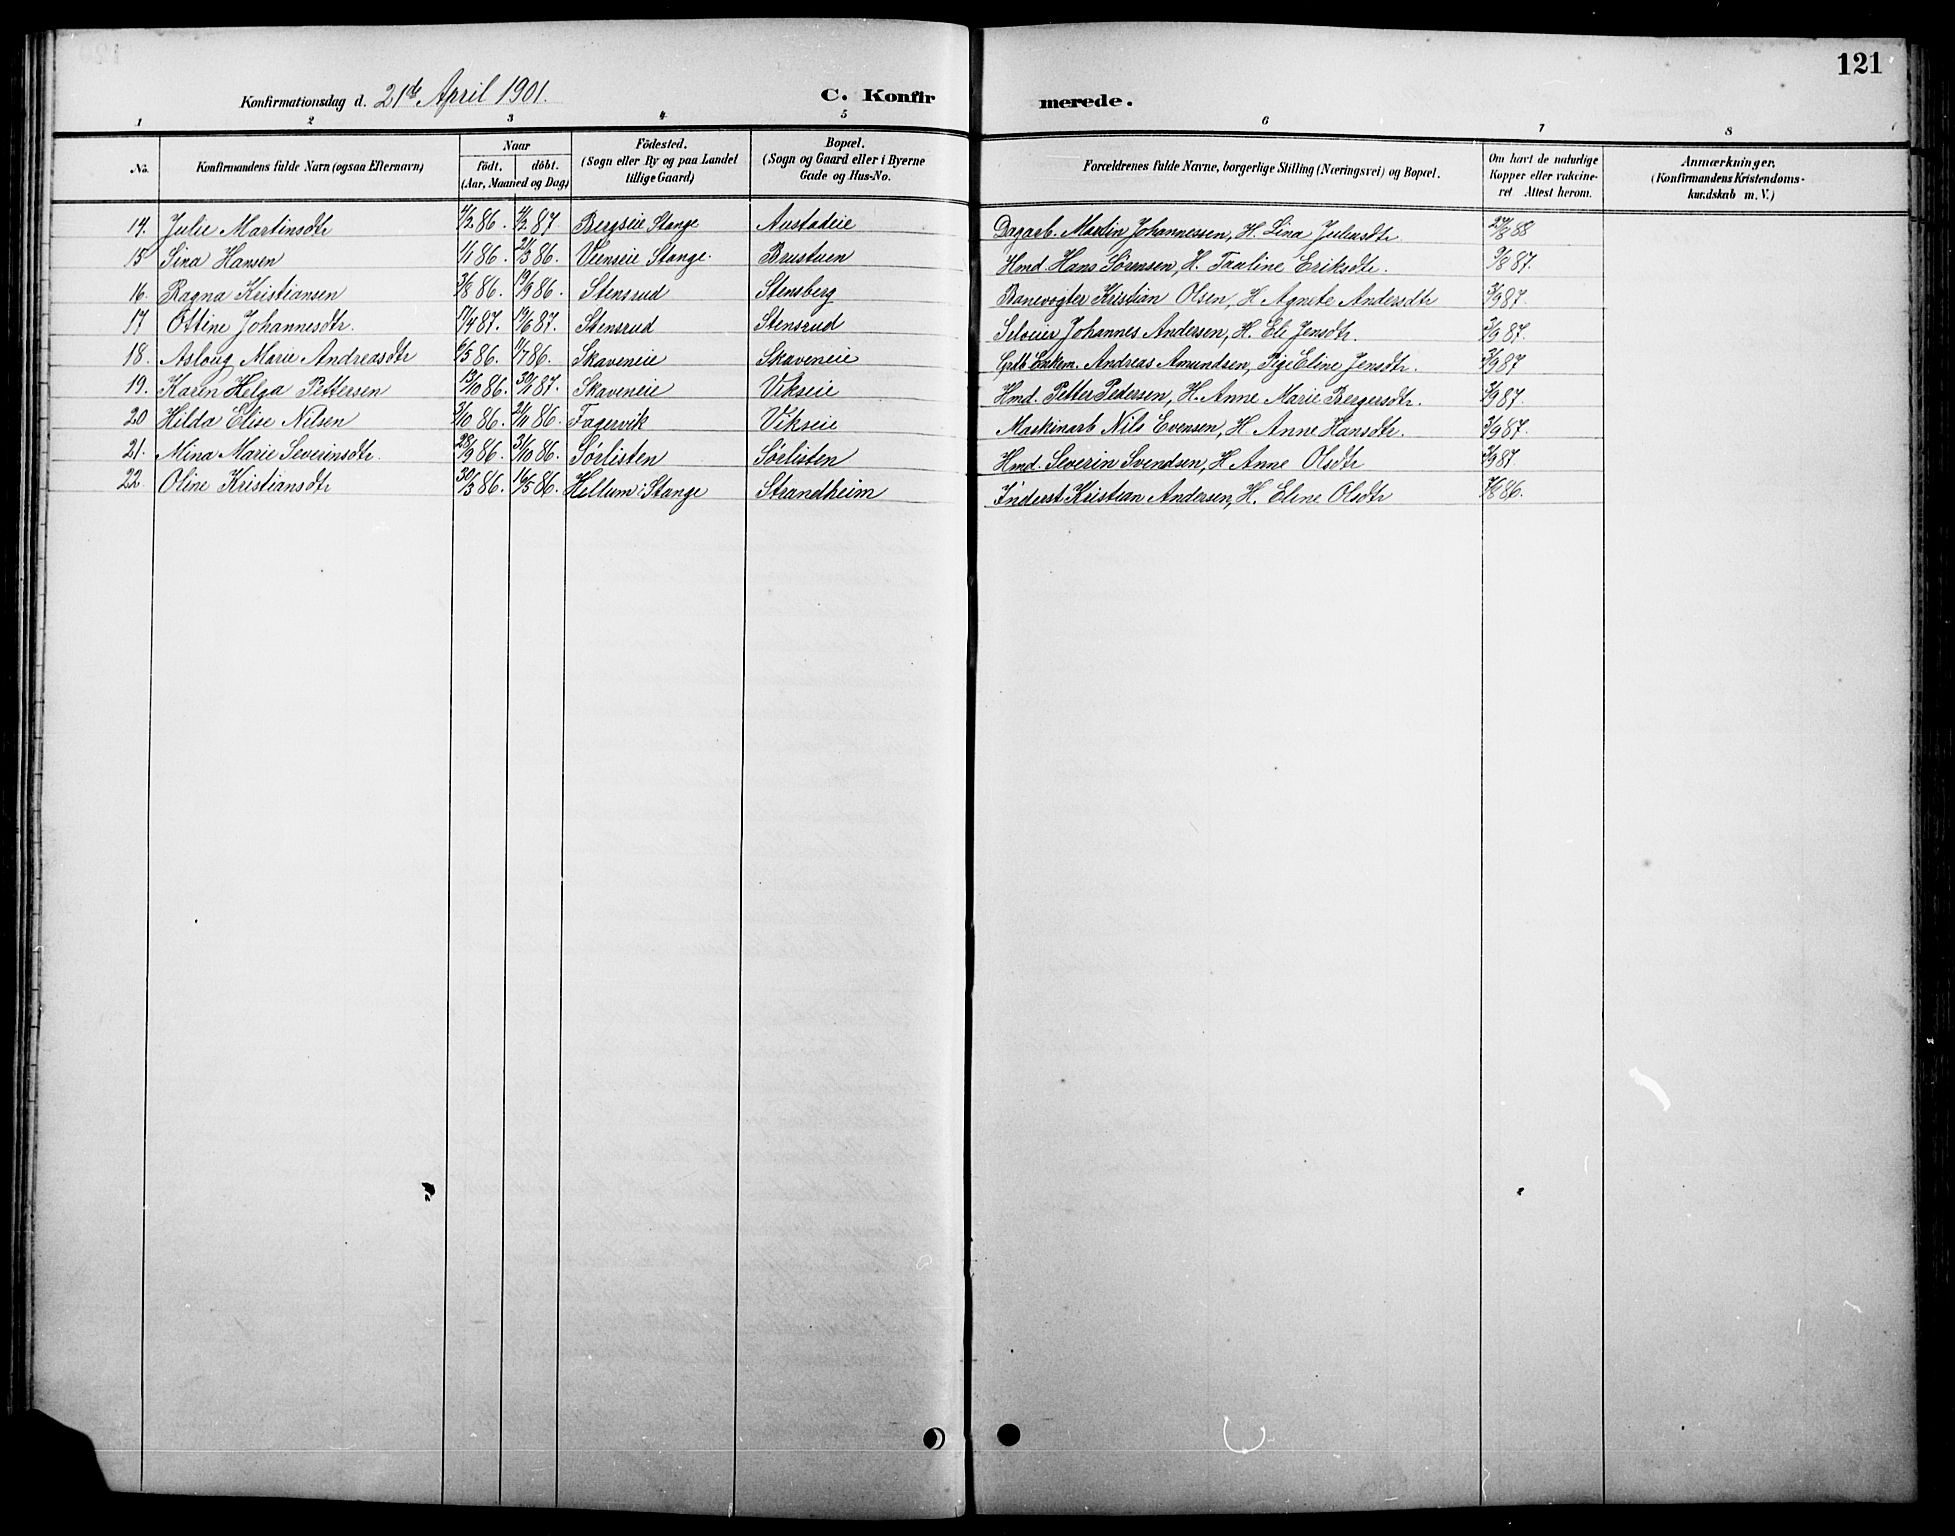 121
Konfirmationsdag d. 21de April 1901. C. Konfirmerede.
1 2 3 4 5 6 7 8
No. Konfirmandens fulde Navn (ogsaa Efternavn) Naar født. døbt. (Aar, Maaned og Dag) Födested. (Sogn eller By og paa Landet tillige Gaard) Bopæl. (Sogn og Gaard eller i Byerne Gade og Hus-No. Forældrenes fulde Navne, borgerlige Stilling (Næringsvei) og Bopæl. Om havt de naturlige Kopper eller vakcineret Attest herom. Anmærkninger. (Konfirmandens Kristendomskundskab m. V.)
14. Julie Martinsdtr 86. 87 Bergseie Stange Austadeie Dagarb. Martin Johannessen, H. Lina Juliusdtr. 88
15 Sina Hansen 1/1 86. 21/3 86. Veenseie Stange. Brustuen Hmd. Hans Sørensen, H. Pauline Eriksdtr. 87.
16. Ragna Kristiansen 3/8 86. 19/9 86. Stensrud Stensberg Banevogter Kristian Olsen, H. Agnete Andersdtr 3/9 87.
17 Ottine Johannesdtr. 17/4 87. 19/6 87. Stensrud Stensrud Selveier Johannes Andersen, H. Eli Jensdtr. 3/9 87.
18. Aslaug Marie Andreasdtr 6/5 86. 11/7 86. Skaveneie Skaveneie Andreas Amundsen, Pige Eline Jensdtr. 3/9 87
19. Karen Helga Pettersen 13/10 86. 30/1 87. Skaveneie Vikseie Hmd. Petter Pedersen, H. Anne Marie Bergersdtr. 3/9 87.
20 Hilda Elise Nilsen 3/10 86. 21/11 86. Fagervik Vikseie Maskinarb Nils Evensen, H. Anne Hansdtr. 3/9 87.
21. Mina Marie Severinsdtr. 28/9 86. 31/10 86. Sørlisten Sørlisten Hmd. Severin Svendsen, H. Anne Olsdtr 3/9 87.
22. Oline Kristiansdtr 30/3 86. 16/5 86. Hellum: Stange Strandheim Inderst Kristian Andersen, H. Eline Olsdtr 86.